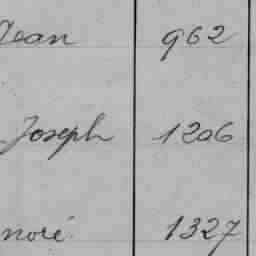 Jean 962
Joseph 1206
noré 1327